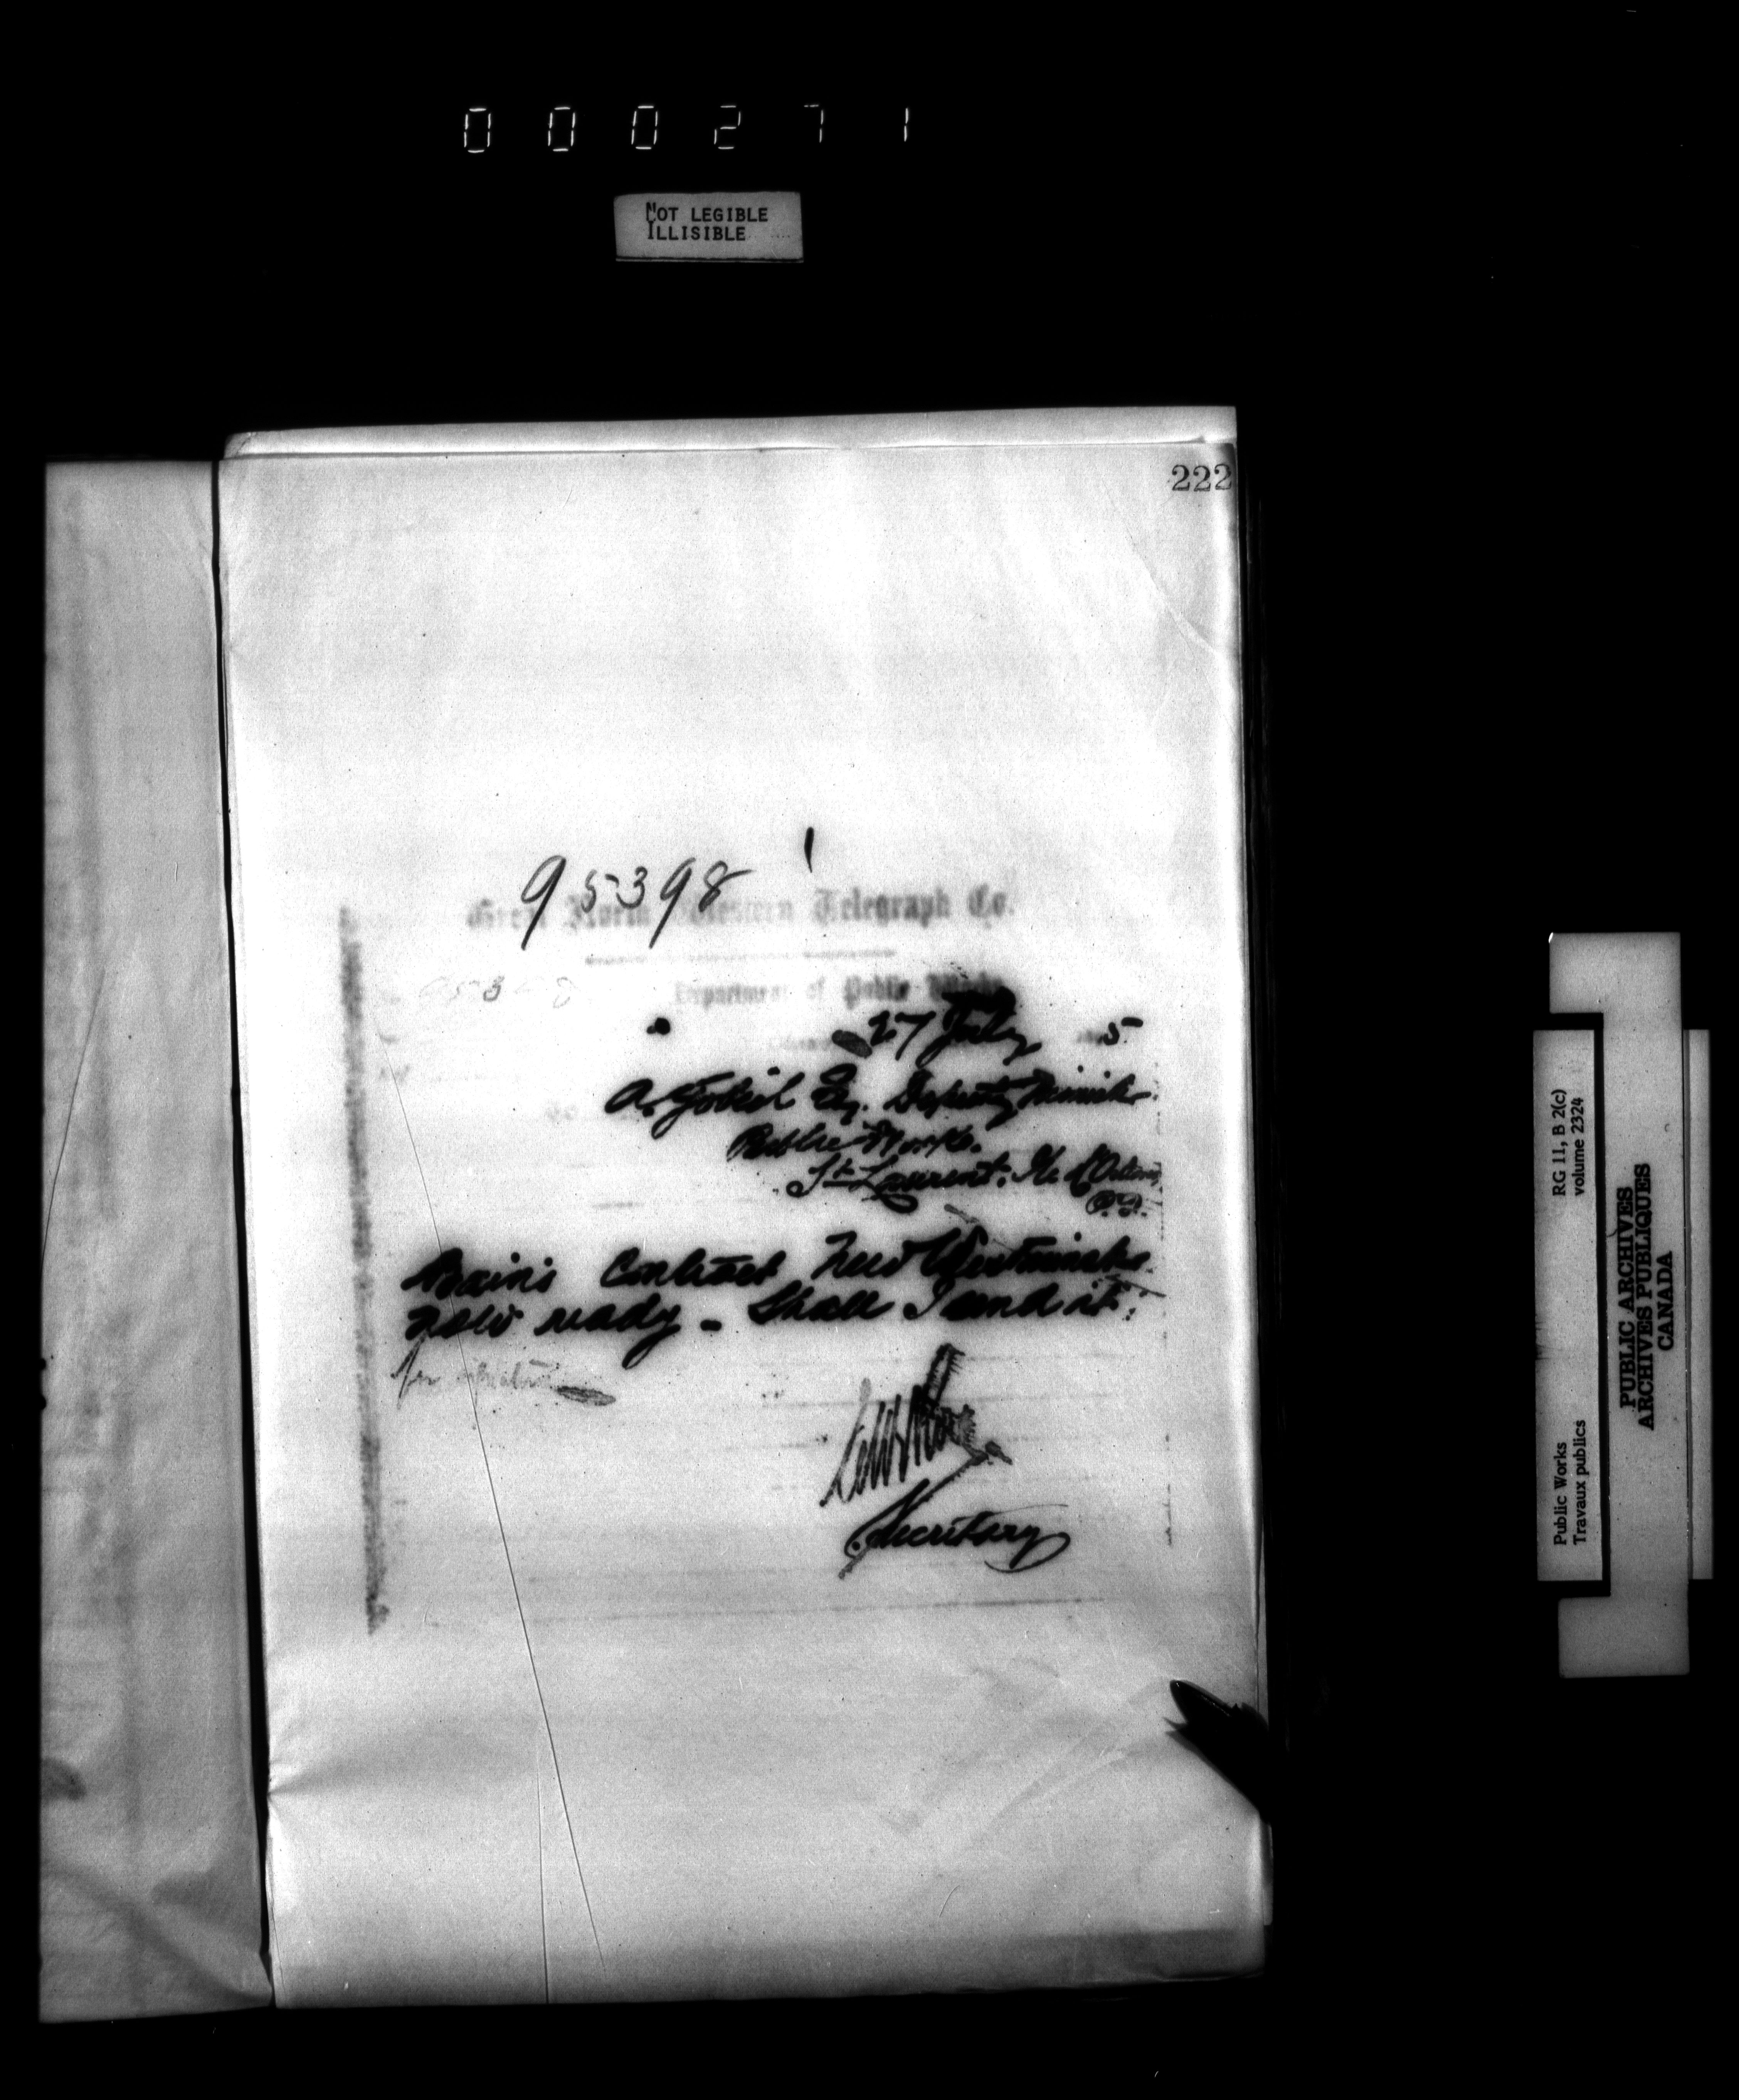 000271
NOT LEGIBLE
ILLISIBLE
222
95398
Great North Western Telegraph Co.
Department of Public Works
27 July 5
A. Gobeil Esq. Deputy Minister
Public Works.
St Laurent. Ile d'Orleans
P.Q.
Contract New Westminster
now ready - Shall I send it
for
Secretary
RG 11, B 2(c)
volume 2324
Public Works
Travaux publics
PUBLIC ARCHIVES
ARCHIVES PUBLIQUES
CANADA